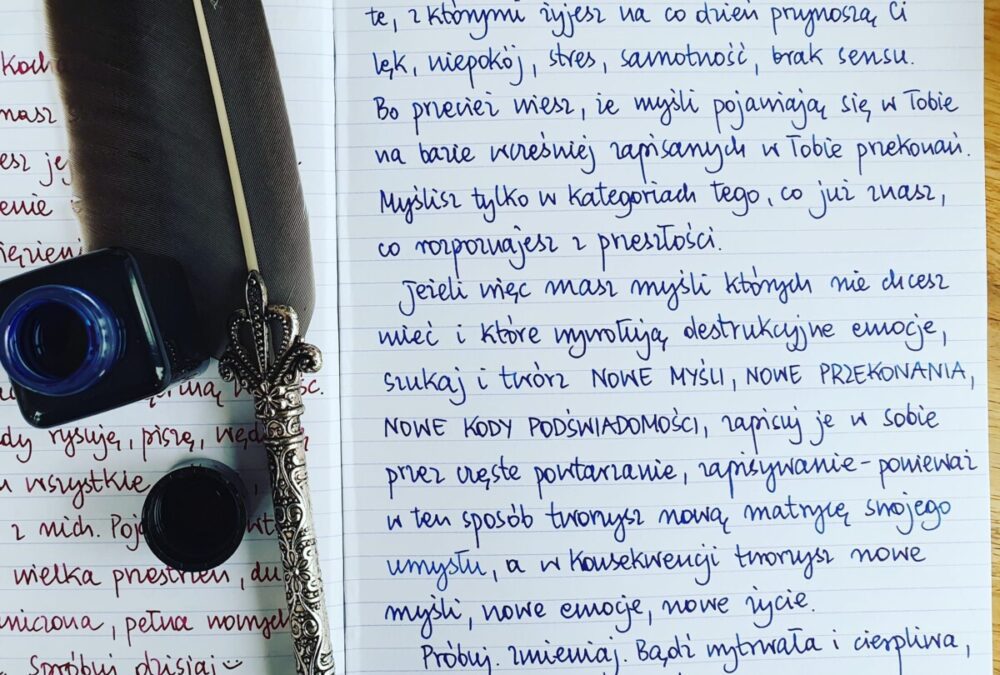 Kocha
masz s
esz jej
enie
ięzieni
ność.
dy rysuję, piszę, węd
u wszystkie
z nich. Poj
wielka przestrzeń, du
niczona, pełna nowych
Spróbuj dzisiaj
te, z którymi żyjesz na co dzień przynoszą Ci
lęk, niepokój, stres, samotność, brak sensu.
Bo przecież wiesz, że myśli pojawiają się w Tobie
na bazie wcześniej zapisanych w Tobie przekonań.
Myślisz tylko w kategoriach tego, co już znasz,
co rozpoznajesz z przeszłości.
Jeżeli więc masz myśli których nie chcesz
mieć i które wywołują destrukcyjne emocje,
szukaj i twórz NOWE MYŚLI, NOWE PRZEKONANIA,
NOWE KODY PODŚWIADOMOŚCI, zapisuj je w sobie
przez częste powtarzanie, zapisywanie - ponieważ
w ten sposób tworzysz nową matrycę swojego
umysłu, a w konsekwencji tworzysz nowe
myśli, nowe emocje, nowe życie.
Próbuj. Zmieniaj. Bądź wytrwała i cierpliwa,